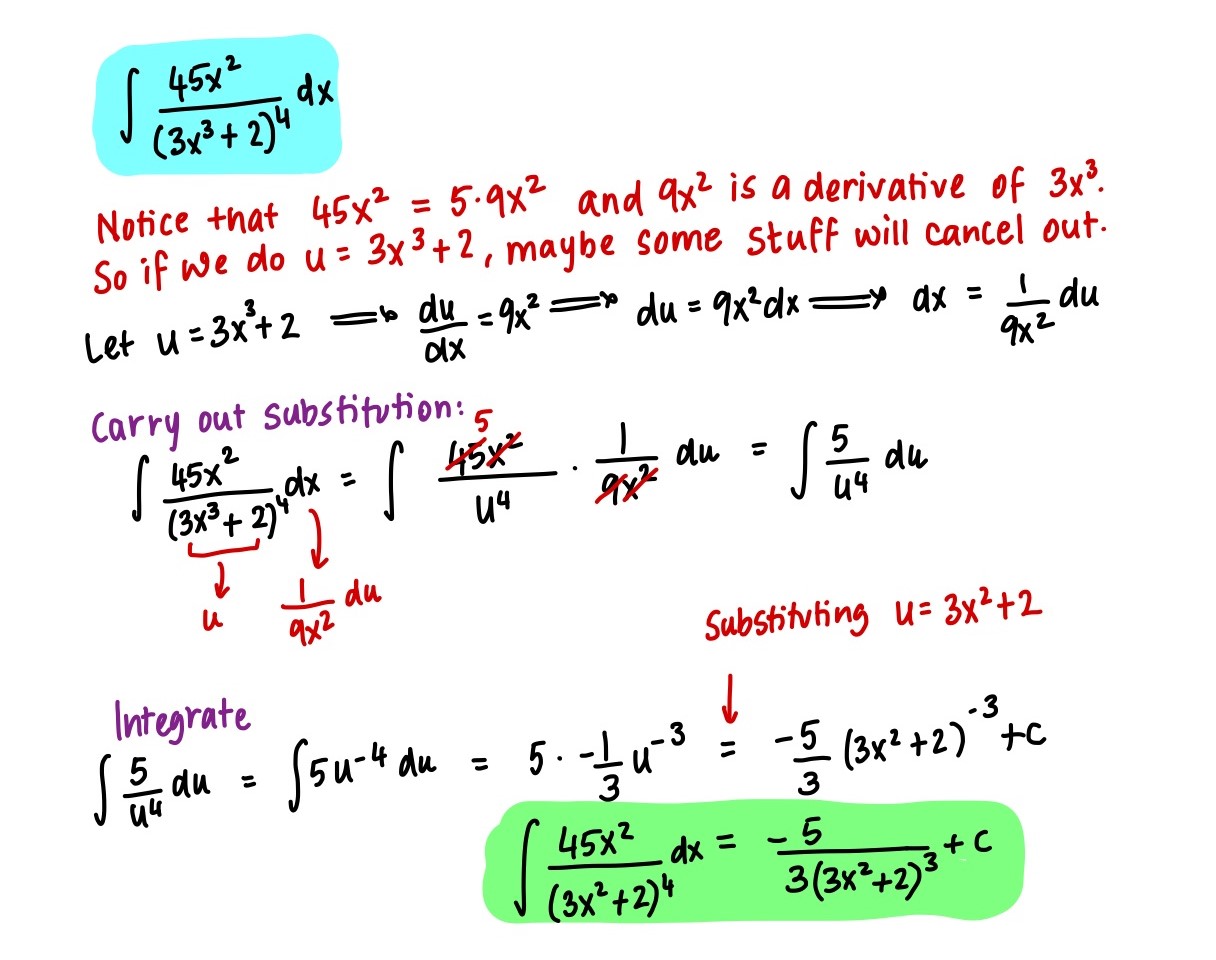 ∫ 45x² / (3x³ + 2)⁴ dx
Notice that 45x² = 5·9x² and 9x² is a derivative of 3x³.
So if we do u = 3x³ + 2, maybe some stuff will cancel out.
Let u = 3x³ + 2 ⟹ du/dx = 9x² ⟹ du = 9x² dx ⟹ dx = 1/9x² du
Carry out substitution:
5
∫ 45x² / (3x³ + 2)⁴ dx = ∫ 45x² / u⁴ · 1/9x² du = ∫ 5/u⁴ du
u 1/9x² du
Substituting u = 3x² + 2
Integrate
∫ 5/u⁴ du = ∫ 5u⁻⁴ du = 5 · -1/3 u⁻³ = -5/3 (3x² + 2)⁻³ + C
∫ 45x² / (3x² + 2)⁴ dx = -5 / 3(3x² + 2)³ + C